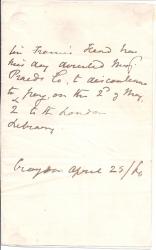 Sir Francis Head has
this day directed Mess
Praed & Co, to discontinue
to pay, on the 2d of May,
£2 to the London
Library
Croydon April 25/60